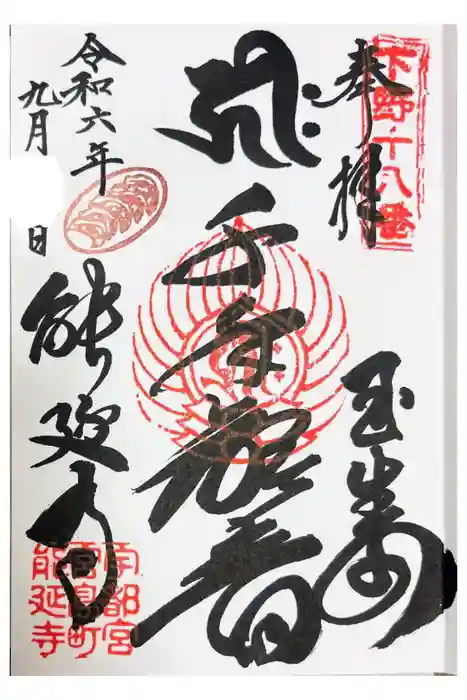 奉拝
下野十八番
千手観音
令和六年
九月 日
能延寺
宇都宮
宮島町
能延寺